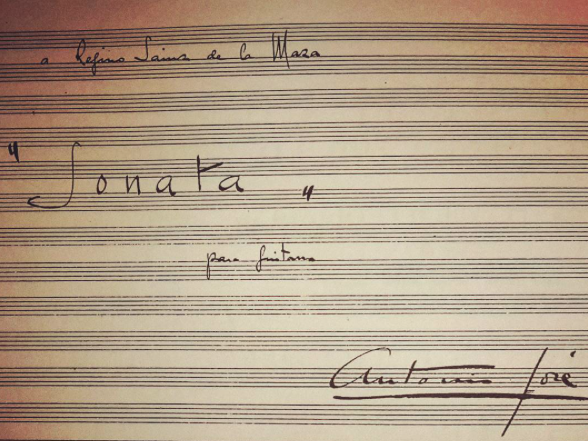 a Regino Sainz de la Maza
"Sonata"
para guitarra
Antonio José